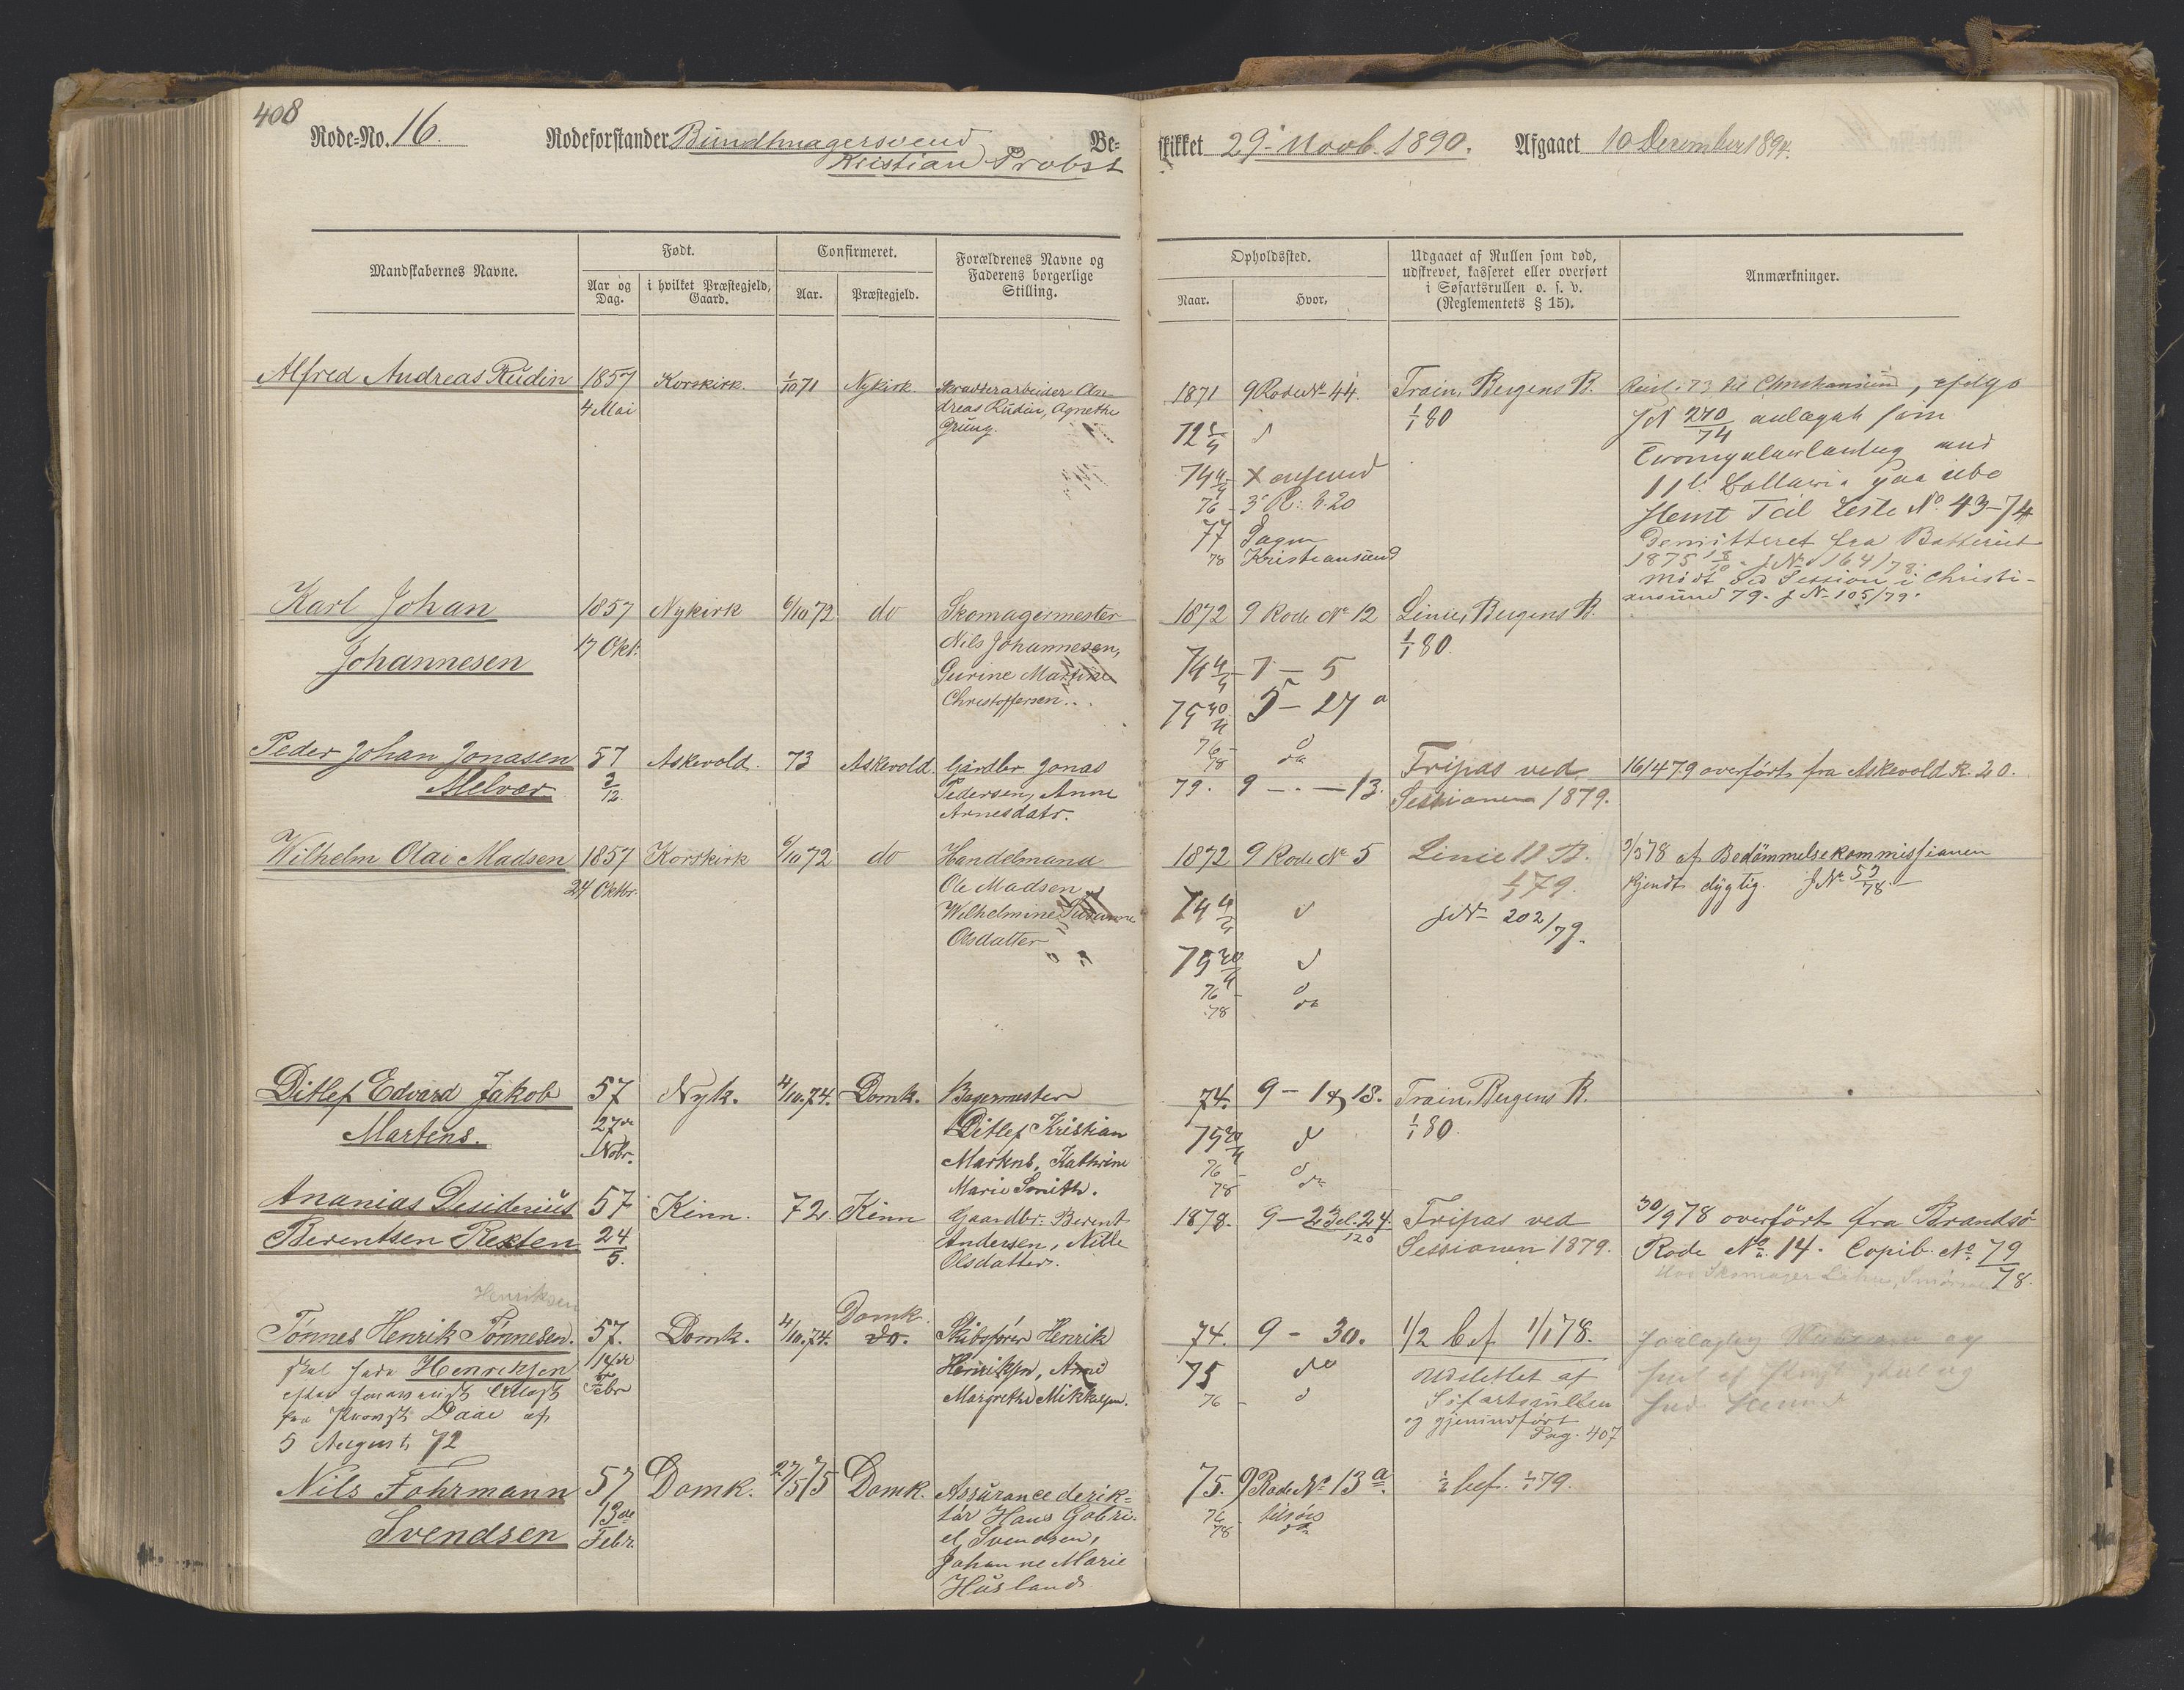 408
Rode-No. 16. Rodeforstander Bundtmagersvend Be-
Kristian Probst
skikket 29. Novb. 1890. Afgaaet 10 December 1894.
Mandskabernes Navne.
Født.
Aar og Dag.
i hvilket Præstegjeld, Gaard.
Confirmeret.
Aar.
Præstegjeld.
Forældrenes Navne og
Faderens borgerlige
Stilling.
Opholdssted.
Naar.
Hvor,
Udgaaet af Rullen som død,
udskrevet, kasseret eller overført
i Søfartsrullen o. s. v.
(Reglementets § 15).
Anmærkninger.
Alfred Andreas Rudin 1857 Korskirk. 1/10 71 Nykirk. An-
4 Mai dreas Rudin, Agnethe
Grung.
1871 9 Rode No 44. Train, Bergens B.
1/1 80
72
74
76 - 3 R: 20
77
78 Kristiansund
til Christiansund
JN 270/74 som
Liste No. 43-74
Demitteret fra Batteriet
1875 JNo 164/78.
mødt ved Session i Christi-
ansund 79. JN 105/79.
Karl Johan 1857 Nykirk 6/10 72 do Skomagermester
Johannesen 17 Okt. Nils Johannesen,
Gurine Martine
Christoffersen.
1872 9 Rode No 12 Linie, Bergens B.
1/1 80.
74 4/4 - 7 - 5
75 20/4 5 - 27 a
76 -
78 do
Peder Johan Jonasen 57 Askevold. 73 Askevold. Gårdbr. Jonas
Melvær 3/12. Pedersen, Anne
Arnesdatr.
79. 9 - . - 13. Fripas ved
Sessionen 1879.
16/4 79 overført fra Askevold R. 20.
Wilhelm Olai Madsen 1857 Korskirk 6/10 72 do Handelmand
24 Oktbr. Ole Madsen
Wilhelmine Susanne
Olsdatter
1872 9 Rode No 5 Linie 11 B.
1/1 79.
JNo 202/79.
74 4/4
75 20/4
76 -
78 do
78 af Bedømmelseskommissionen
kjendt dygtig. JNo 53/78.
Ditlef Edvard Jakob 57 Nyk. 4/10.74. Domk. Bagermester
Martens. 27de Nobr. Ditlef Kristian
Martens, Kathrine
Marie Smith.
74. 9 - 18, 18. Train, Bergens B.
1/1 80.
75 20/4
76 -
78 do
Ananias Desiderius 57 Kinn. 72. Kinn Gaardbr. Berent
Berentsen Reksten 24/5. Andersen, Nille
Olsdatter.
1878. 9 - 2 Del. 24. Fripas ved
120 Sessionen 1879.
30/9 78 overført fra Brandsø
Rode No. 14. Copib. No 79/78.
Hos Skomager
Henriksen
Tønnes Henrik Tønnesen. 57. Domk. 4/10.74. Domk. do. Skibsfører Henrik
skal hede Henriksen 14de Febr Henriksen,
efter Margrethe Mikkelsen.
fra Provst Daae af
5 August 72
74. 9 - 30. 1/2 bef. 1/1 78.
75 do Udslettet af
76 - Søfartsrullen
og gjenindført
Pag. 407
Nils Fohrmann 57 Domk. 27/5 75 Domk. Assurancedirik-
Svendsen 13de Febr. tør Hans Gabri-
el Svendsen,
Johanne Marie
Husland
75. 9 Rode No 13 a. 1/2 bef. 1/1 79.
76 - tilsøs
78 do